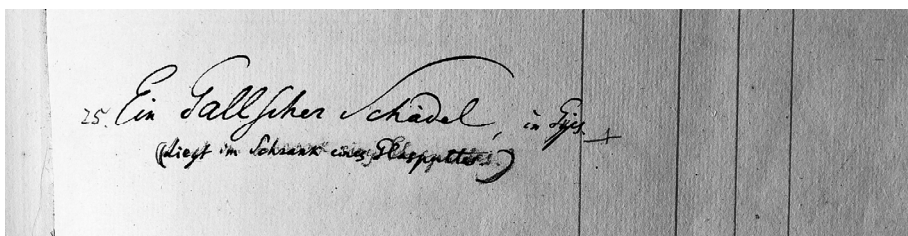 25. Ein Gallscher Schädel, in Gÿps.
(Liegt im Schrank eines